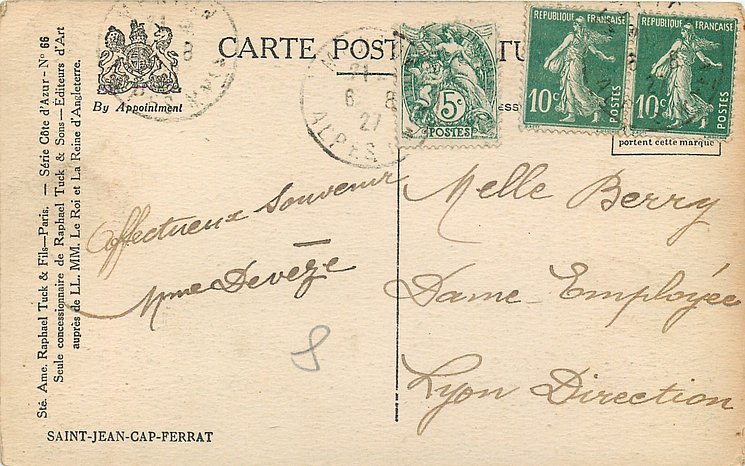 CARTE POST
By Appointment
RÉPUBLIQUE FRANÇAISE
10c
POSTES
RÉPUBLIQUE FRANÇAISE
10c
POSTES
5c
POSTES
21
6 8
27
ALPES
portent cette marque
Sté. Ame. Raphael Tuck & Fils—Paris. — Série Côte d'Azur - No 66
Seule concessionnaire de Raphael Tuck & Sons—Editeurs d'Art
auprès de LL. MM. Le Roi et La Reine d'Angleterre.
affectueux souvenir
Mme Devèze
Melle Berry
Dame Employée
Lyon Direction
SAINT-JEAN-CAP-FERRAT